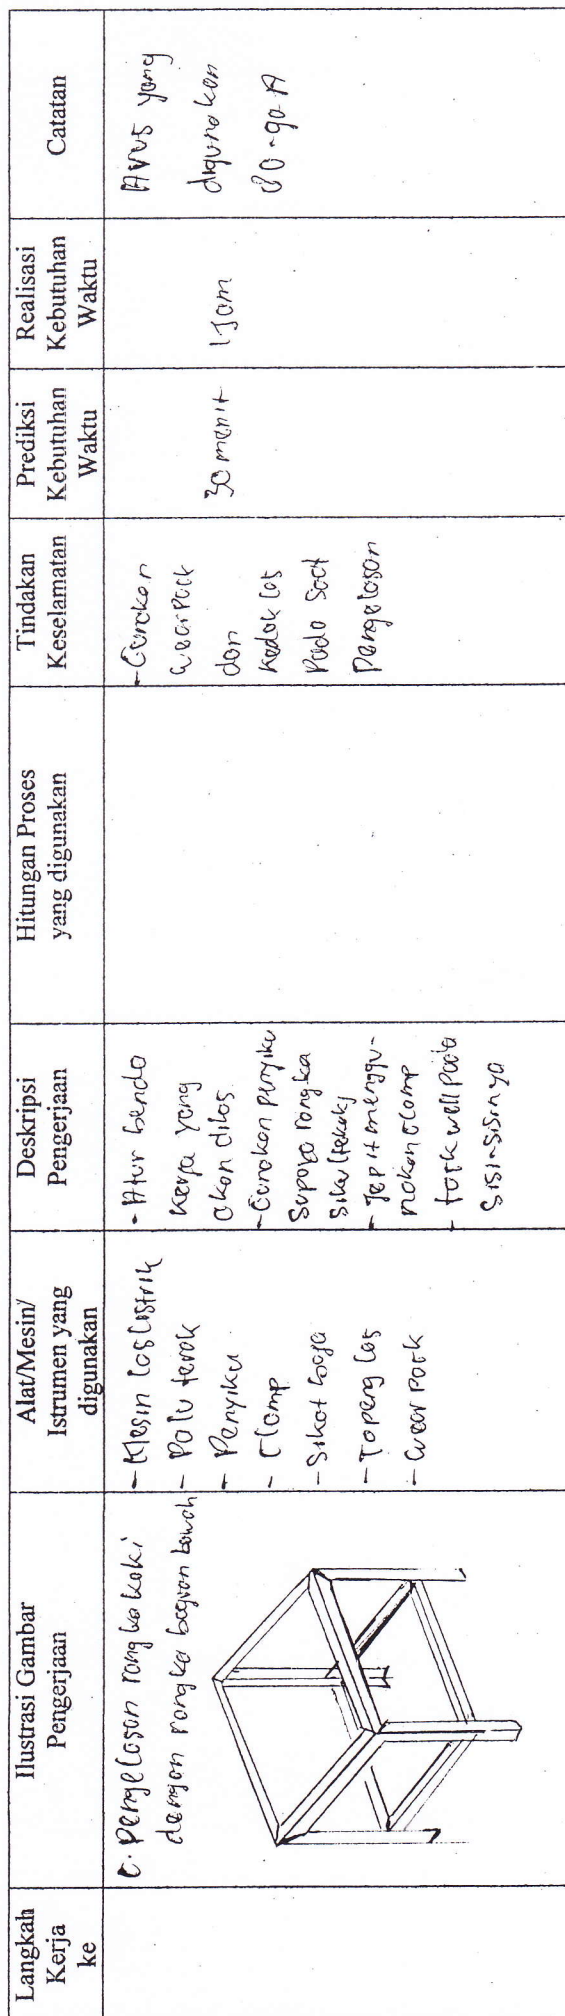 Langkah
Kerja
ke
Ilustrasi Gambar
Pengerjaan
Alat/Mesin/
Istrumen yang
digunakan
Deskripsi
Pengerjaan
Hitungan Proses
yang digunakan
Tindakan
Keselamatan
Prediksi
Kebutuhan
Waktu
Realisasi
Kebutuhan
Waktu
Catatan
C. Pengelasan rangka kaki
dengan rangka bagian bawah
- Mesin Las Listrik
- Palu terak
- Penyiku
- Clamp
- Sikat baja
- Topeng las
- Wear pack
- Atur benda
kerja yang
akan dilas
- Gunakan penyiku
supaya rangka
siku
- Jepit menggu-
nakan clamp
- tack well pada
sisi-sisinya
- Gunakan
wearpack
dan
kedok las
pada saat
Pengelasan
30 menit
1 Jam
Arus yang
digunakan
80-90 A